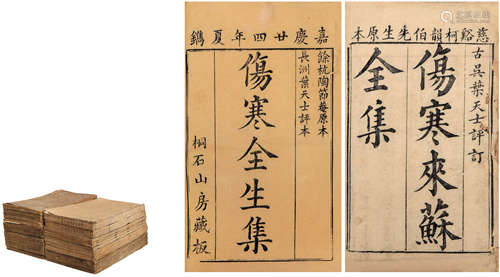 嘉慶廿四年夏鐫
餘杭陶節菴原本
長洲葉天士評本
傷寒全生集
桐石山房藏板
慈谿柯韻伯先生原本
古吳葉天士評訂
傷寒來蘇
全集